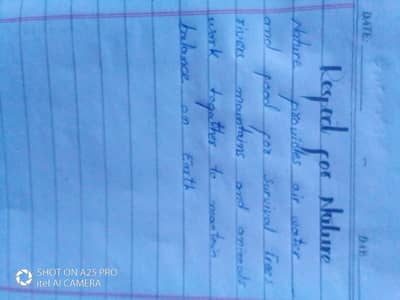 DATE
Respect for Nature
Nature provides air water
and food for survival Trees
rivers mountains and animals
work together to maintain
balance on Earth
SHOT ON A25 PRO
itel AI CAMERA